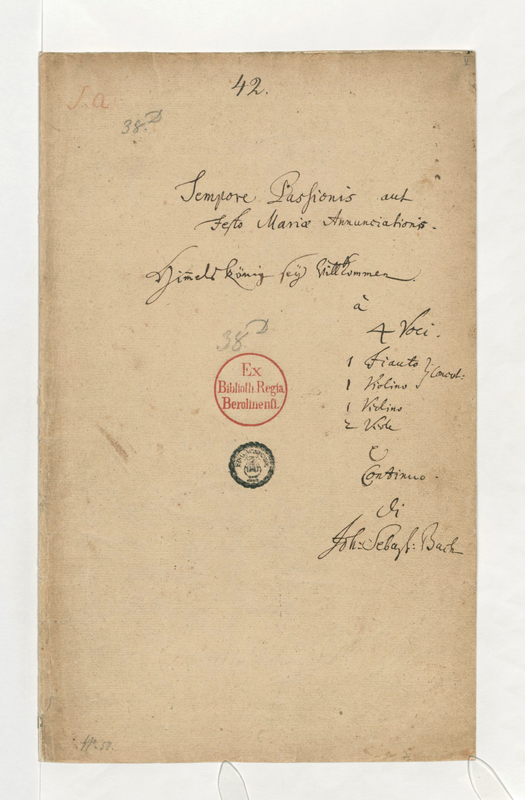 42.
38.D
Tempore Passionis aut
Festo Mariæ Annunciationis.
Him̅els König seÿ Willkommen.
à
4 Voci.
1 Fiauto
1 Violino } Concert:
1 Violino
2 Viole
e
Continuo.
di
Joh: Sebast: Bach
38D
Ex
Biblioth. Regia
Berolinenſi.